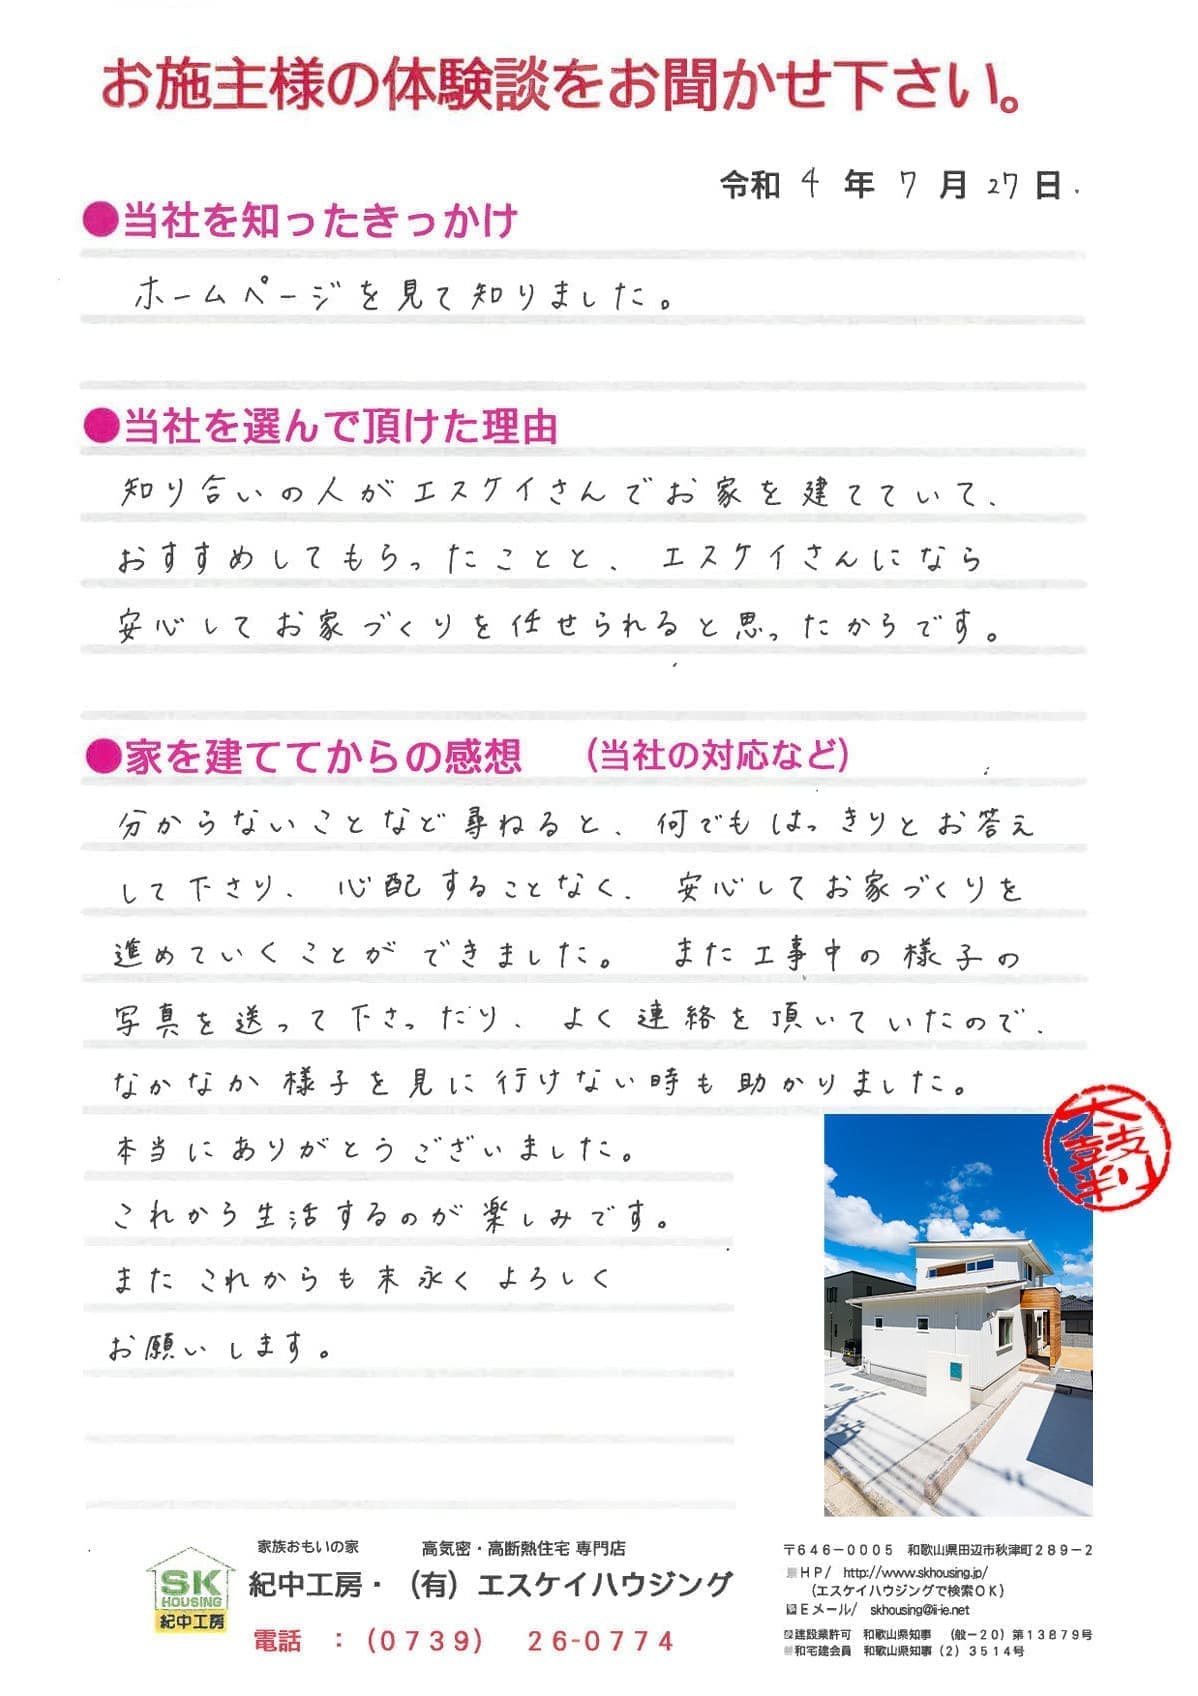 お施主様の体験談をお聞かせ下さい。
令和 4 年 7 月 27 日.
●当社を知ったきっかけ
ホームページを見て知りました。
●当社を選んで頂けた理由
知り合いの人がエスケイさんでお家を建てていて、
おすすめしてもらったことと、エスケイさんになら
安心してお家づくりを任せられると思ったからです。
●家を建ててからの感想 （当社の対応など）
分からないことなど尋ねると、何でもはっきりとお答え
して下さり、心配することなく、安心してお家づくりを
進めていくことができました。また工事中の様子の
写真を送って下さったり、よく連絡を頂いていたので、
なかなか様子を見に行けない時も助かりました。
本当にありがとうございました。
これから生活するのが楽しみです。
またこれからも末永くよろしく
お願いします。
太鼓判
SK
HOUSING
紀中工房
家族おもいの家 高気密・高断熱住宅 専門店
紀中工房・（有）エスケイハウジング
電話 ：（0739） 26-0774
〒646－0005 和歌山県田辺市秋津町289－2
HP/ http://www.skhousing.jp/
（エスケイハウジングで検索OK）
Eメール/ skhousing@ii-ie.net
建設業許可 和歌山県知事 （般－20）第13879号
和宅建会員 和歌山県知事（2）3514号